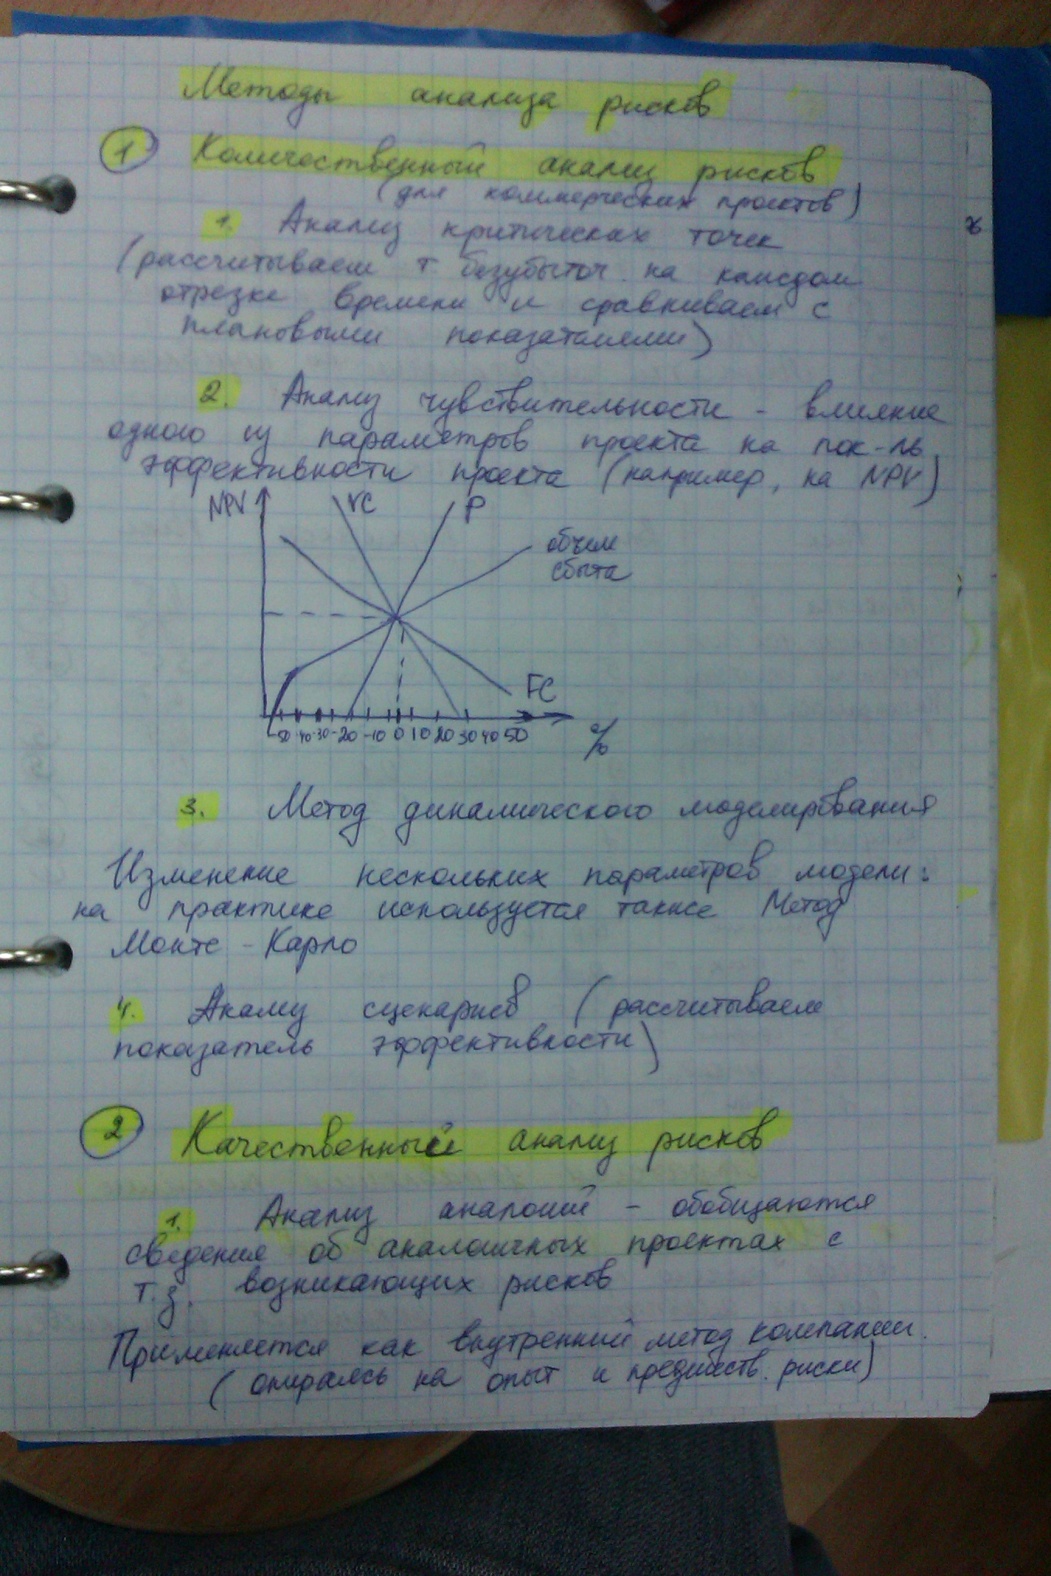 Методы анализа рисков
1 Количественный анализ рисков
(для коммерческих проектов)
1. Анализ критических точек
(рассчитываем т. безубыточ. на каждом
отрезке времени и сравниваем с
плановыми показателями)
2. Анализ чувствительности - влияние
одного из параметров проекта на пок-ль
эффективности проекта (например, на NPV)
NPV VC P
объем
сбыта
FC
-50 -40 -30 -20 -10 0 10 20 30 40 50 %
3. Метод динамического моделирования
Изменение нескольких параметров модели:
на практике используется также Метод
Монте-Карло
4. Анализ сценариев (рассчитываем
показатель эффективности)
2 Качественный анализ рисков
1. Анализ аналогий - обобщаются
сведения об аналогичных проектах с
т.з. возникающих рисков
Применяется как внутренний метод компании.
(опираясь на опыт и предшеств. риски)